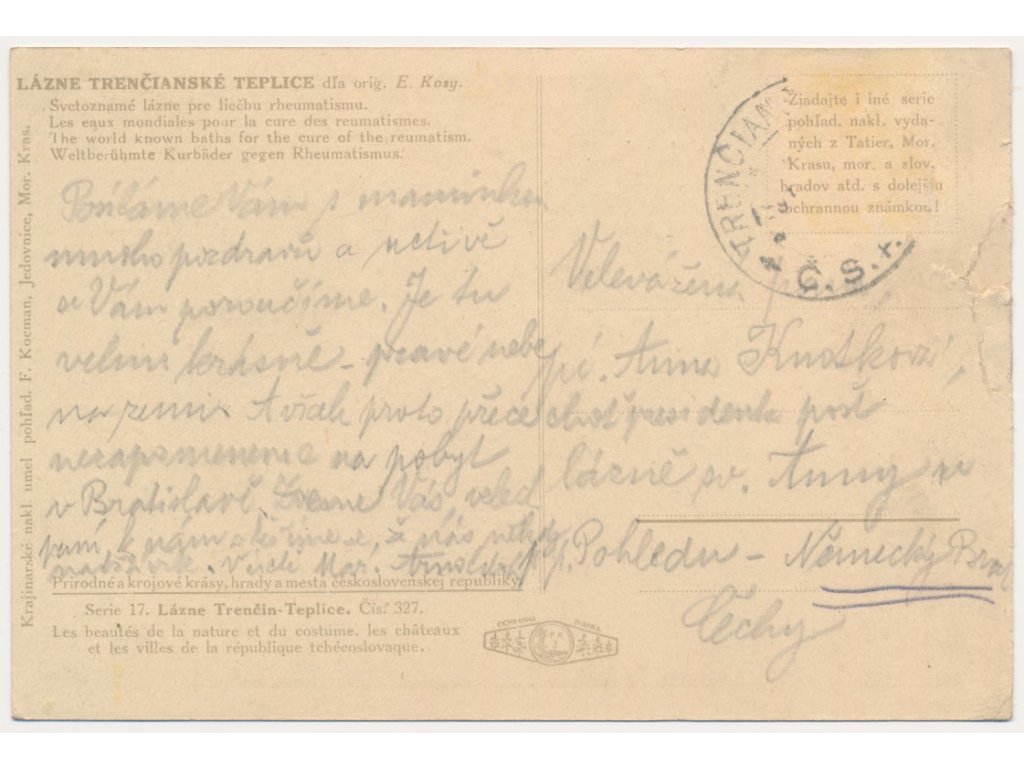 LÁZNE TRENČIANSKÉ TEPLICE dľa orig. E. Kosy.
Svetoznamé lázne pre liečbu rheumatismu.
Les eaux mondiales pour la cure des reumatismes.
The world known baths for the cure of the reumatism.
Weltberühmte Kurbäder gegen Rheumatismus.
Krajinárské nakl. umel pohľad. F. Kocman, Jedovnice, Mor. Kras.
Vám s maminkou
mnoho pozdravů a uctivě
se Vám poroučíme. Je tu
velmi krásně - pravé nebe
na zemi. Avšak proto přece
nezapomeneme na pobyt
v Bratislavě. Zveme Vás, veled.
paní, k nám a těšíme se, že nás někdy
navštívíte. Mar.
Prírodné a krojové krásy, hrady a mesta československej republiky.
Serie 17. Lázne Trenčín-Teplice. Čís. 327.
Les beautés de la nature et du costume, les châteaux
et les villes de la république tchécoslovaque.
OCHRANNÁ ZNÁMKA
Žiadajte i iné serie
pohľad. nakl. vyda-
ných z Tatier, Mor.
Krasu, mor. a slov.
hradov atd. s dolejšiu
ochrannou známkou!
TRENČIAN
Č. S.
Velevážená
pí. Anna Knotková,
choť presidenta pošt
lázně sv. Anny u
Pohledu - Německý Brod
Čechy